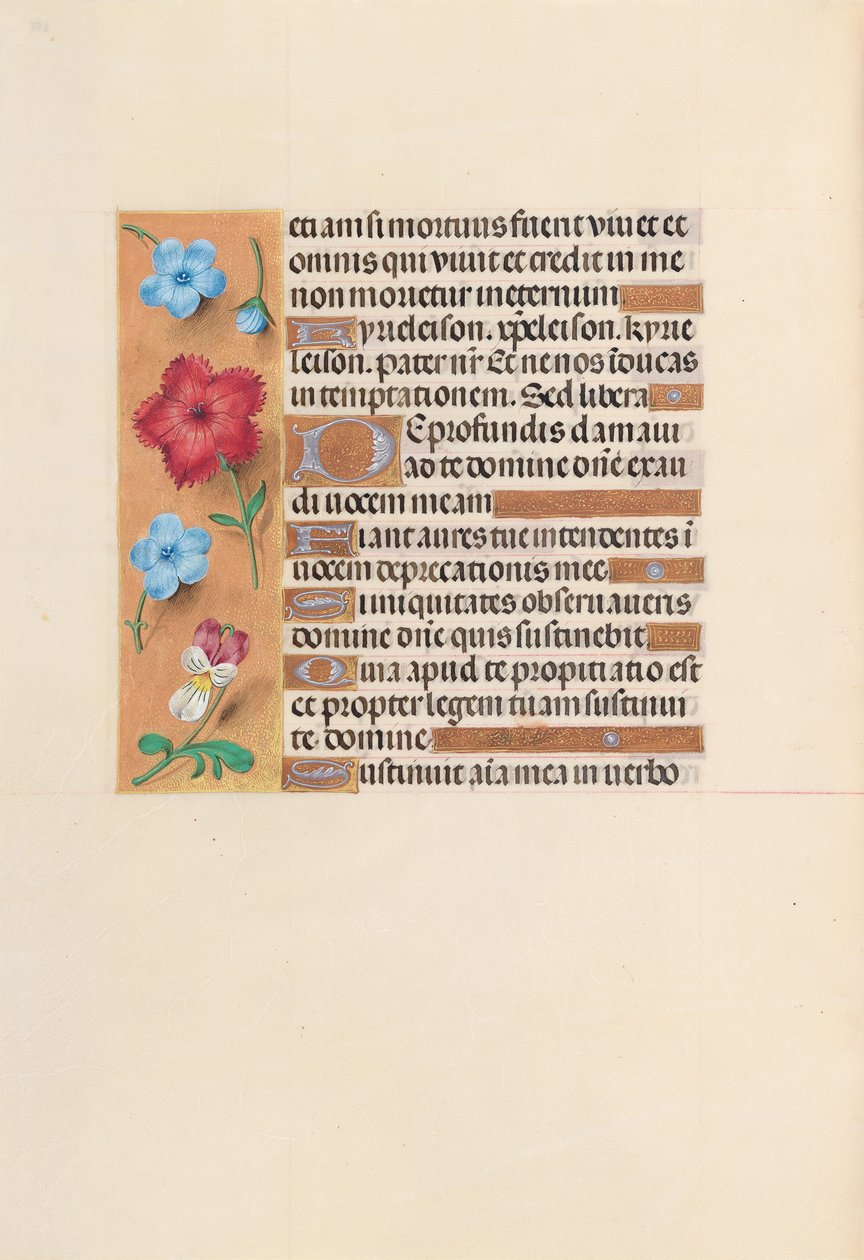 etiam si mortuus fuerit vivet et
omnis qui vivit et credit in me
non morietur in eternum
Kyrieleison. xp̄eleison. kyrie
leison. pater nr̄ Et ne nos īducas
in temptationem. Sed libera
De profundis clamaui
ad te domine dn̄e exau
di uocem meam
Fiant aures tue intendentes ī
uocem deprecationis mee
Si iniquitates obseruaueris
domine dn̄e quis sustinebit
Quia apud te propitiatio est
et propter legem tuam sustinui
te domine
Sustinuit aīa mea in uerbo